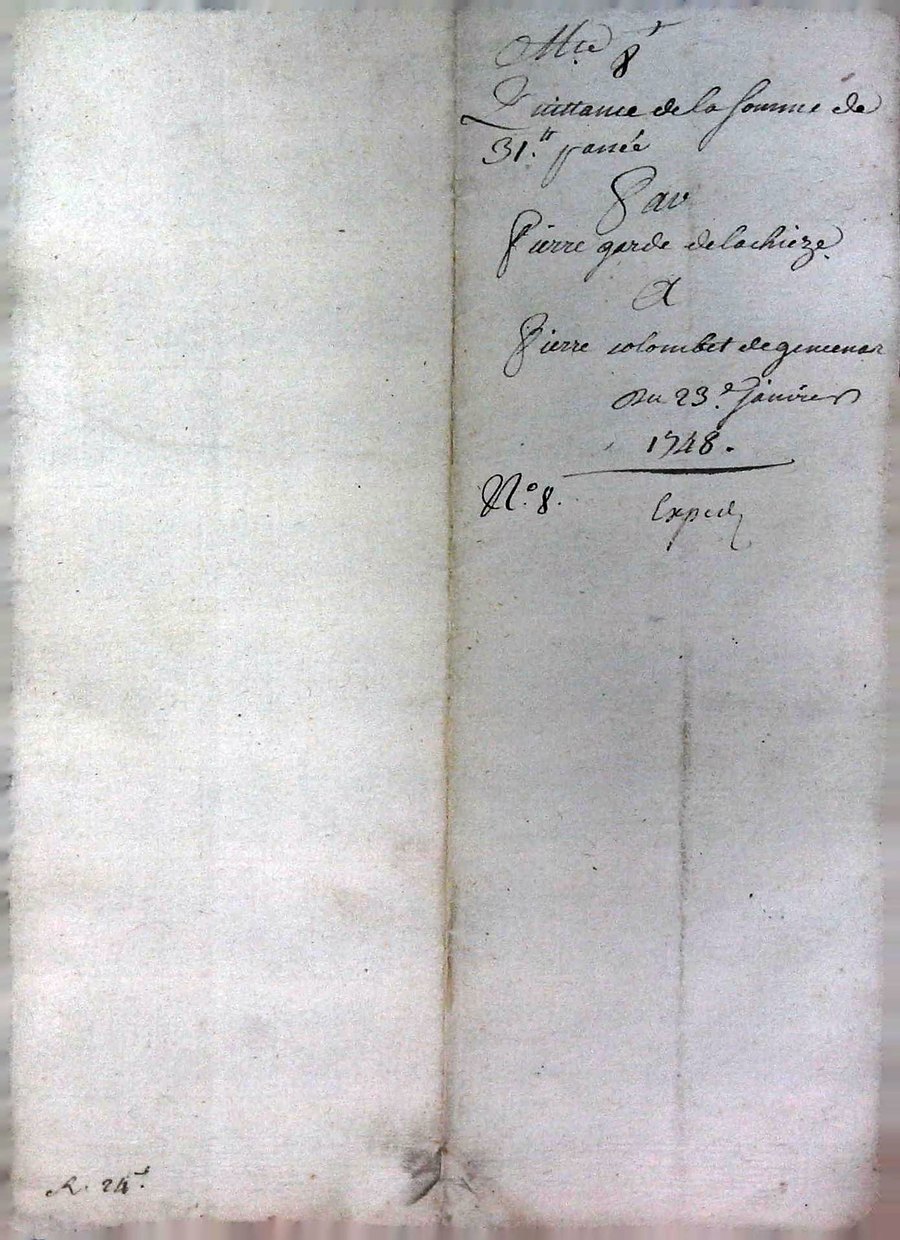 8
Quittance de la somme de
31.tt payée
Par
Pierre garde delachieze
A
Pierre colombet de
du 23.e Janvier
1748.
N.o 8.
Exped
R. 24.s